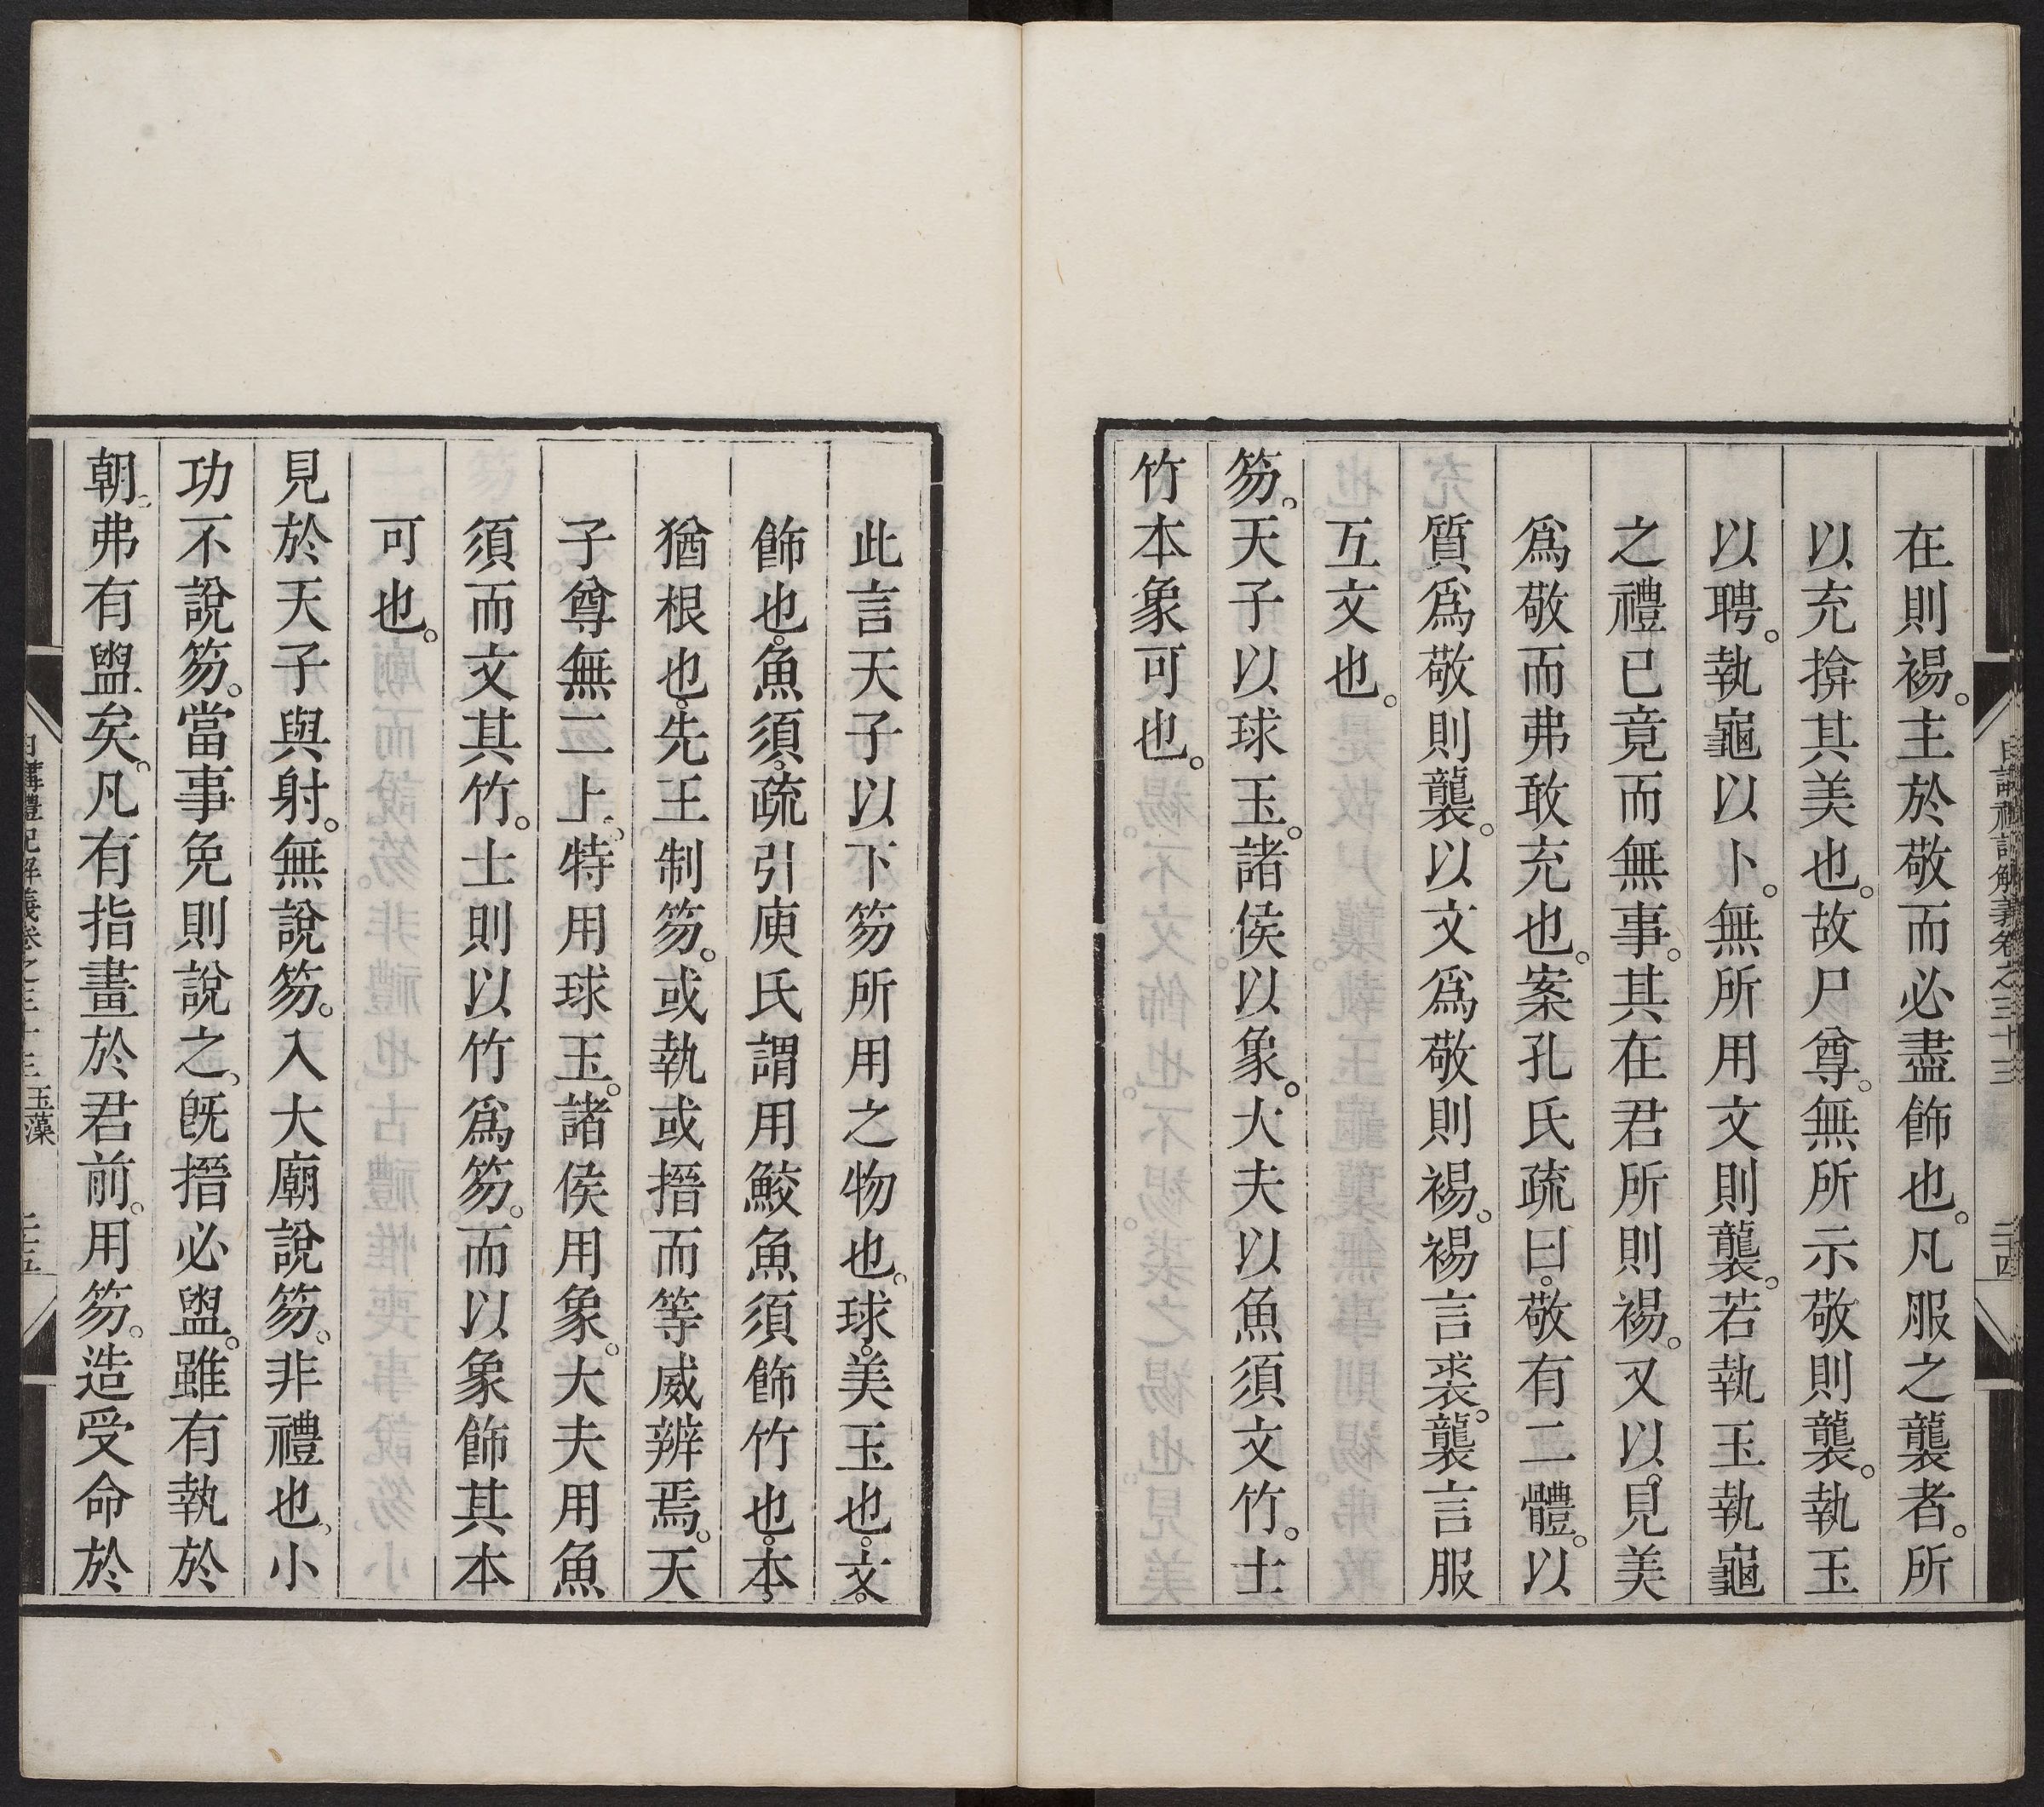 在則裼。主於敬而必盡飾也。凡服之襲者。所
以充揜其美也。故尸尊。無所示敬則襲。執玉
以聘。執龜以卜。無所用文則襲。若執玉執龜
之禮已竟而無事。其在君所則裼。又以。見美
爲敬而弗敢充也。案孔氏疏曰。敬有二體。以
質爲敬則襲。以文爲敬則裼。裼言裘。襲言服
互文也。
笏。天子以球玉。諸侯以象。大夫以魚須文竹。士
竹本象可也。
此言天子以下笏所用之物也。球。美玉也。文。
飾也。魚須。疏引庾氏謂用鮫魚須飾竹也。本。
猶根也。先王制笏。或執或搢而等威辨焉。天
子尊無二上。特用球玉。諸侯用象。大夫用魚
須而文其竹。士則以竹爲笏。而以象飾其本
可也。
見於天子與射。無說笏。入大廟說笏。非禮也。小
功不說笏。當事免則說之。旣搢必盥。雖有執於
朝。弗有盥矣。凡有指畫於君前。用笏。造受命於
日講禮記解義卷之三十三 玉藻 二十五
日講禮記解義卷之三十三 二十四